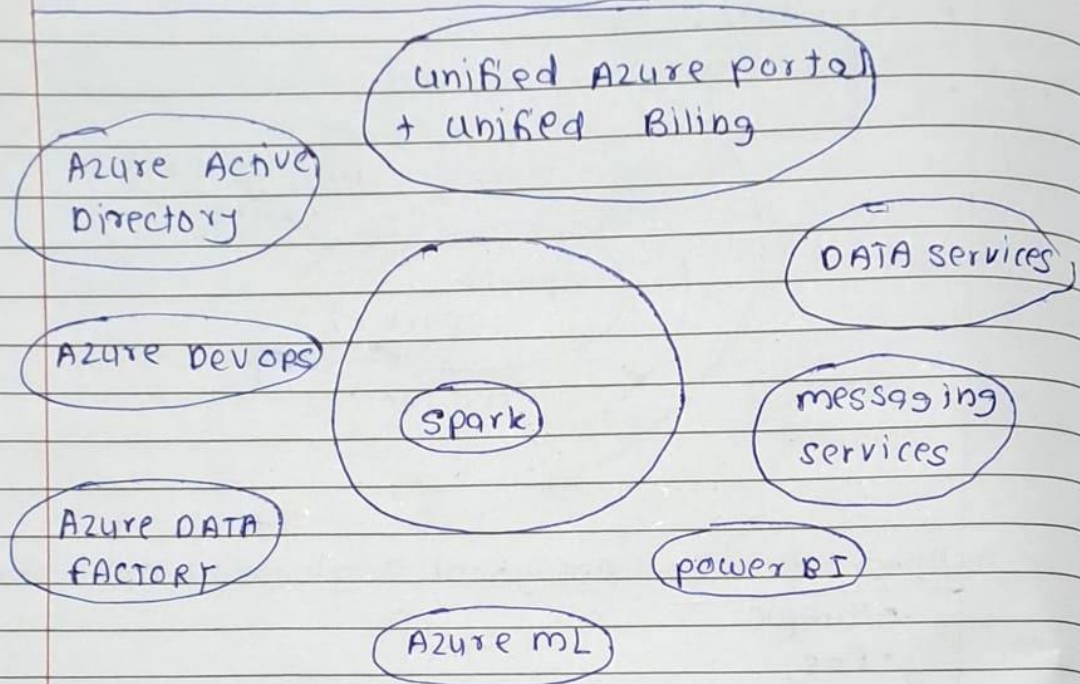 unified Azure portal
+ unified Biling
Azure Active
Directory
DATA services
Azure Devops
spark
messaging
services
Azure DATA
fACTORY
power BI
Azure mL